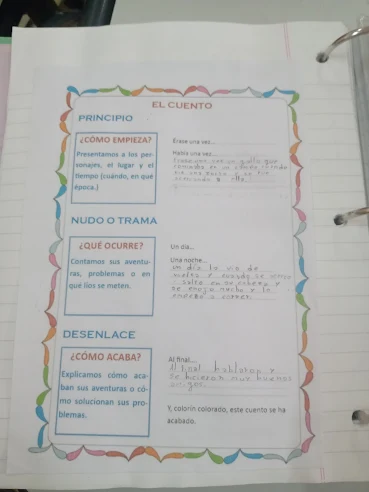 EL CUENTO
PRINCIPIO
¿CÓMO EMPIEZA?
Presentamos a los per-
sonajes, el lugar y el
tiempo (cuándo, en qué
época.)
Érase una vez...
Había una vez...
una vez un grillo que
caminaba en un
vio una
a ella
NUDO O TRAMA
¿QUÉ OCURRE?
Contamos sus aventu-
ras, problemas o en
qué líos se meten.
Un día...
Una noche...
un día la vio de
nuevo y cuando se
salto en su cabeza y
se enojo mucho y lo
empezo a correr
DESENLACE
¿CÓMO ACABA?
Explicamos cómo aca-
ban sus aventuras o có-
mo solucionan sus pro-
blemas.
Al final...
Al final hablaron y
se hicieron muy buenos
Y, colorín colorado, este cuento se ha
acabado.